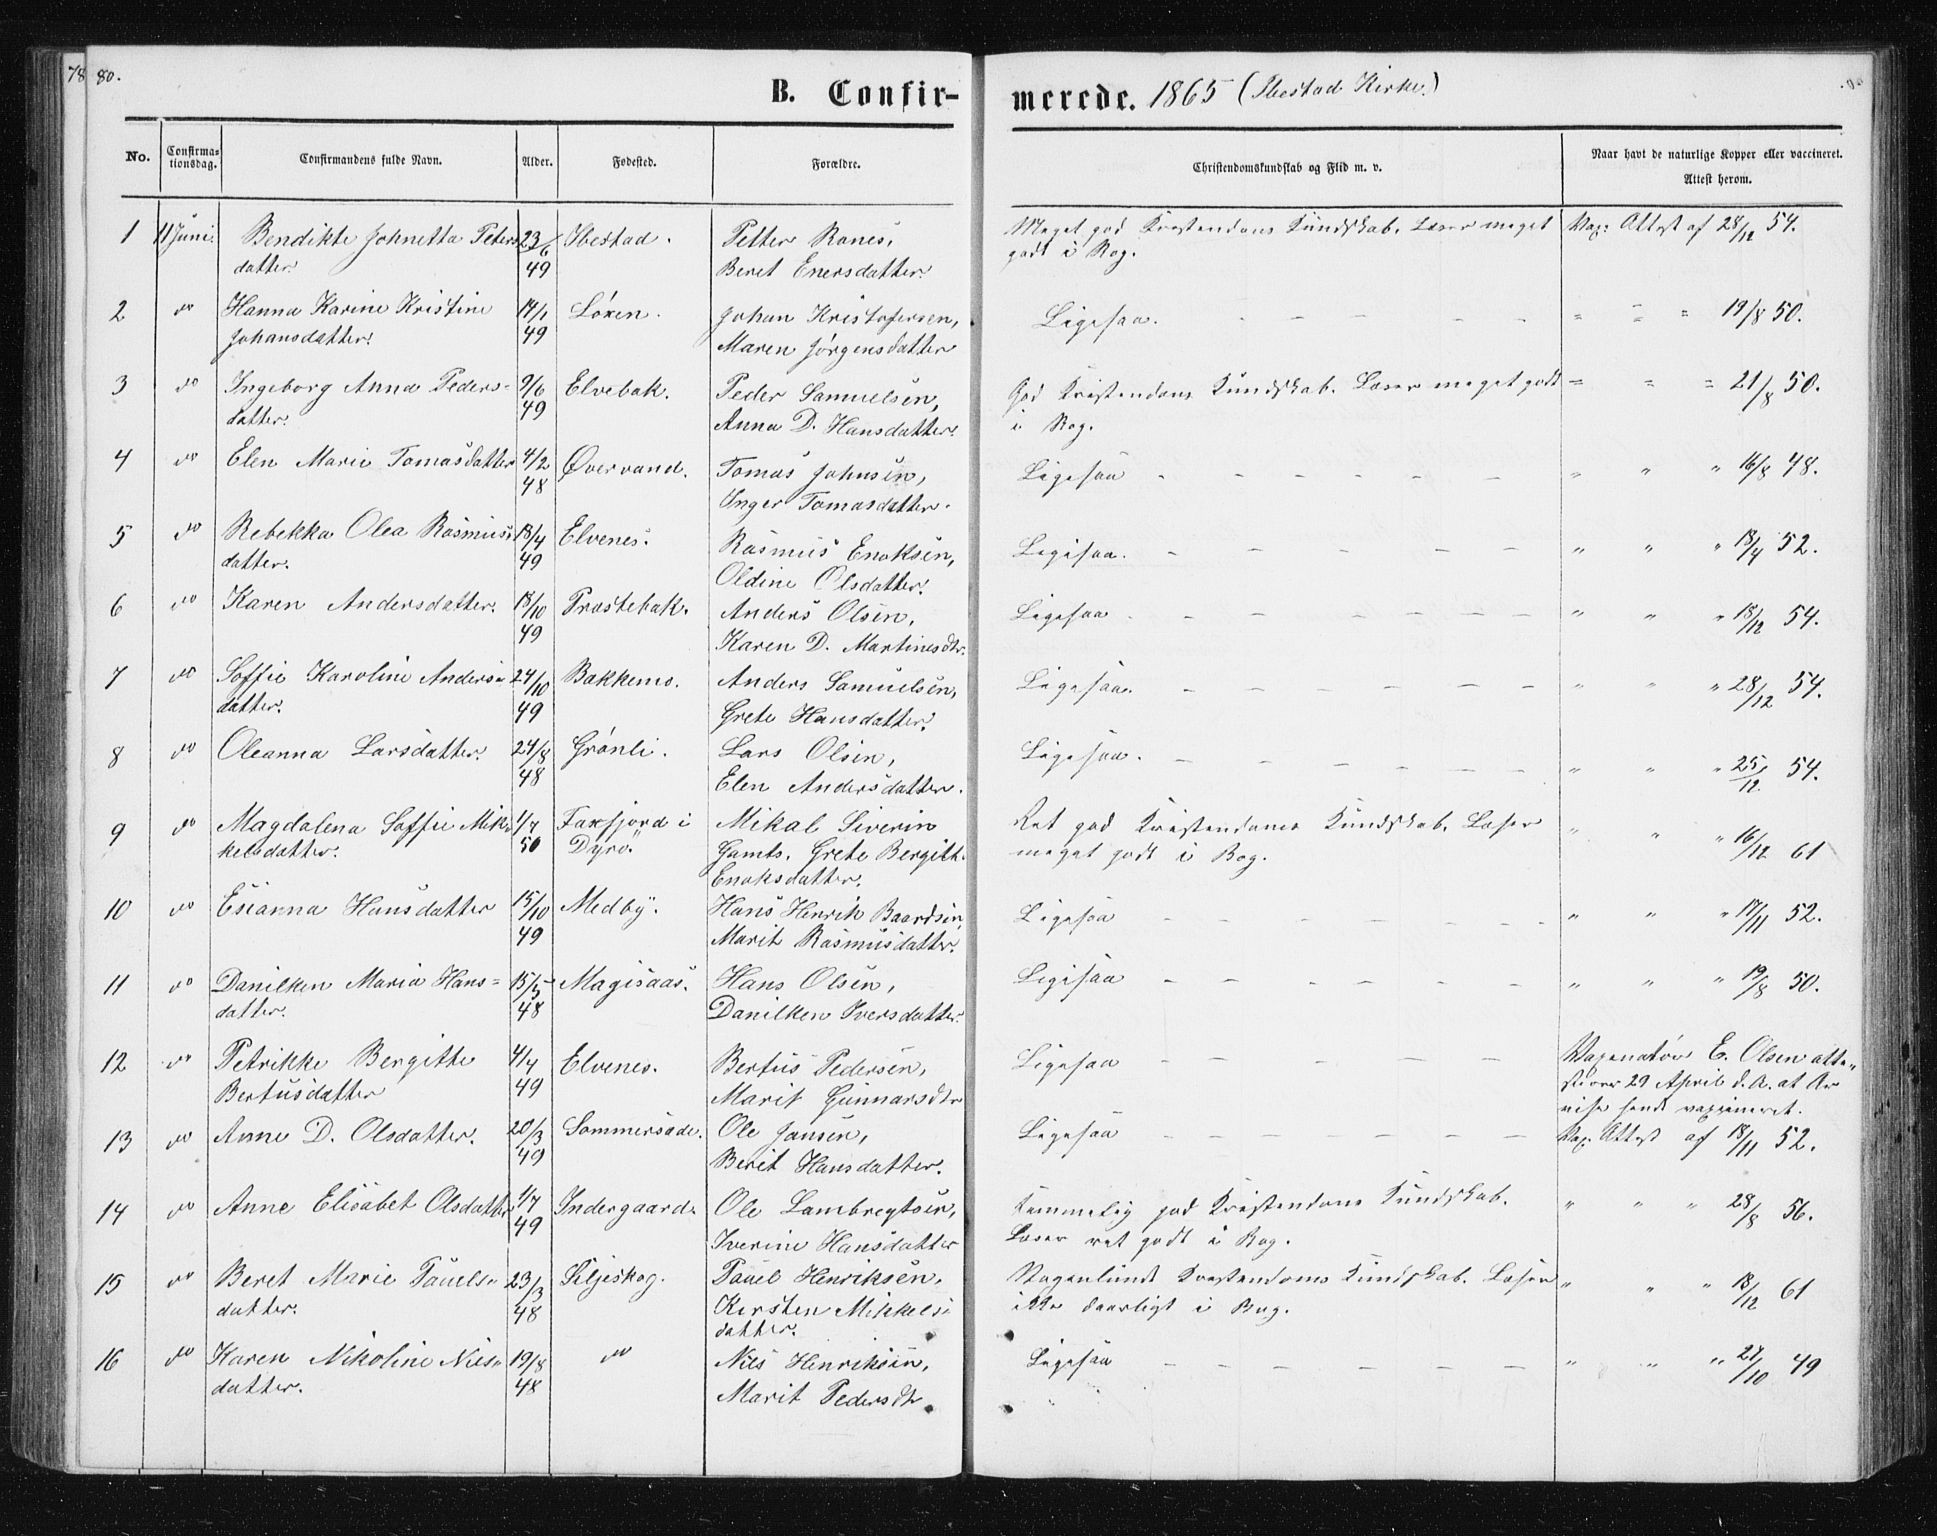 78 80.
B. Confir-
merede. 1865 (Ibestad Kirke.)
No. Confirma-tionsdag. Confirmandens fulde Navn. Alder. Fødested. Forældre. Christendomskundskab og Flid m. v. Naar havt de naturlige Kopper eller vaccineret. Attest herom.
1 11 Juni. Bendikte Johnetta Peters 23/6 Ibestad. Petter Ranes, Meget god Kristendoms Kundskab. Læser meget Vax: Attest af 28/12 54.
datter. 49 Beret Enersdatter. godt i Bog.
2 do Hanna Karine Kristine 14/1 Løxen. Johan Kristofersen, Ligesaa. - - - - - " " " 19/8 50.
Johansdatter. 49 Maren Jørgensdatter
3 do Ingeborg Anna Peders- 9/6 Elvebak. Peder Samuelsen, God Kristendoms Kundskab. Læser meget godt " " " 21/8 50.
datter. 49 Anna D. Hansdatter. i Bog.
4 do Elen Marie Tomasdatter 4/2 Øvervand. Tomas Johnsen, Ligesaa - - - - - - " " " 16/8 48.
48 Inger Tomasdatter.
5 do Rebekka Olea Rasmus- 18/4 Elvenes. Rasmus Enoksen, Ligesaa. - - - - - - " " " 18/4 52.
datter. 49 Oldine Olsdatter.
6 do Karen Andersdatter. 18/10 Præstebak. Anders Olsen, Ligesaa. - - - - - - " " " 18/12 54.
49 Karen D. Martinesdtr.
7 do Soffie Karoline Anders- 24/10 Bakkemo. Anders Samuelsen, Ligesaa. - - - - - - " " " 28/12 54.
datter. 49 Grete Hansdatter.
8 do Oleanna Larsdatter. 24/8 Grønli. Lars Olsen, Ligesaa. - - - - - - " " " 25/12 54.
48 Elen Andersdatter.
9 do Magdalena Soffie Mik- 1/7 Faxfjord i Mikal Siverin Ret god Kristendoms Kundskab. Læser " " " 16/12 61
kelsdatter. 50 Dyrø. Gamts. Grete Bergith. meget godt i Bog.
Enoksdatter.
10 do Esianna Hansdatter 15/10 Medby. Hans Henrik Baardsen, Ligesaa - - - - - - " " " 17/11 52.
49 Marit Rasmusdatter.
11 do Danilken Maria Hans- 15/5 Magisaas. Hans Olsen, Ligesaa - - - - - - " " " 19/8 50.
datter. 48 Danilken Iversdatter.
12 do Petrikke Bergitte 4/4 Elvenes. Bertus Pedersen, Ligesaa - - - - - Vaxenatør E. Olsen atte-
Bertusdatter 49 Marit Gunnarsdtr sterer 29 April d. A. at
vaxineret.
13 do Anne D. Olsdatter. 20/3 Sommersæde. Ole Jansen, Ligesaa - - - - - - Vax: Attest af 18/11 52.
49 Berit Hansdatter.
14 do Anne Elisabet Olsdatter 1/7 Indergaard. Ole Lambregtsen, Temmelig god Kristendoms Kundskab. " " " 28/8 56.
49 Iverine Hansdatter Læser ret godt i Bog.
15 do Beret Marie Pauels- 23/3 Siljeskog. Pauel Henriksen, Kristendoms Kundskab. Læser " " " 18/12 61
datter. 48 Kirsten Mikkels- ikke daarligt i Bog.
datter.
16 do Karen Nikoline Niels- 19/8 do Nils Henriksen, Ligesaa - - - - - " " " 27/10 49
datter. 48 Marit Pedersdtr